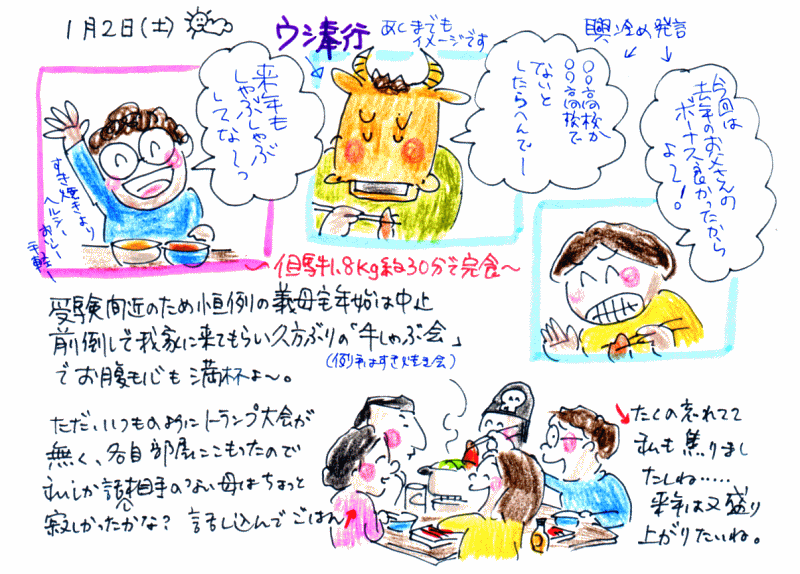 1月2日(土)
ウシ奉行
あくまでも
イメージです
興冷め発言
来年も
しゃぶしゃぶ
してな〜っ
○○高校か
○○高校で
ないと
したらへんでー
今回は
去年のお父さんの
ボーナス良かったから
よ〜!。
すき焼きより
ヘルシー
おいしー
手軽ー
〜但馬牛1,8Kg約30分で完食〜
受験間近のため恒例の義母宅年始は中止
前倒しで我家に来てもらい久方ぶりの「牛しゃぶ会」
(例年はすきやき会)
でお腹も心も満杯よ〜。
ただ、いつものようにトランプ大会が
無く、各自部屋にこもったので
私しか話相手のない母はちょっと
寂しかったかな? 話し込んでごはん
たくの忘れてて
私も焦りまし
たしね……
来年は又盛り
上がりたいね。